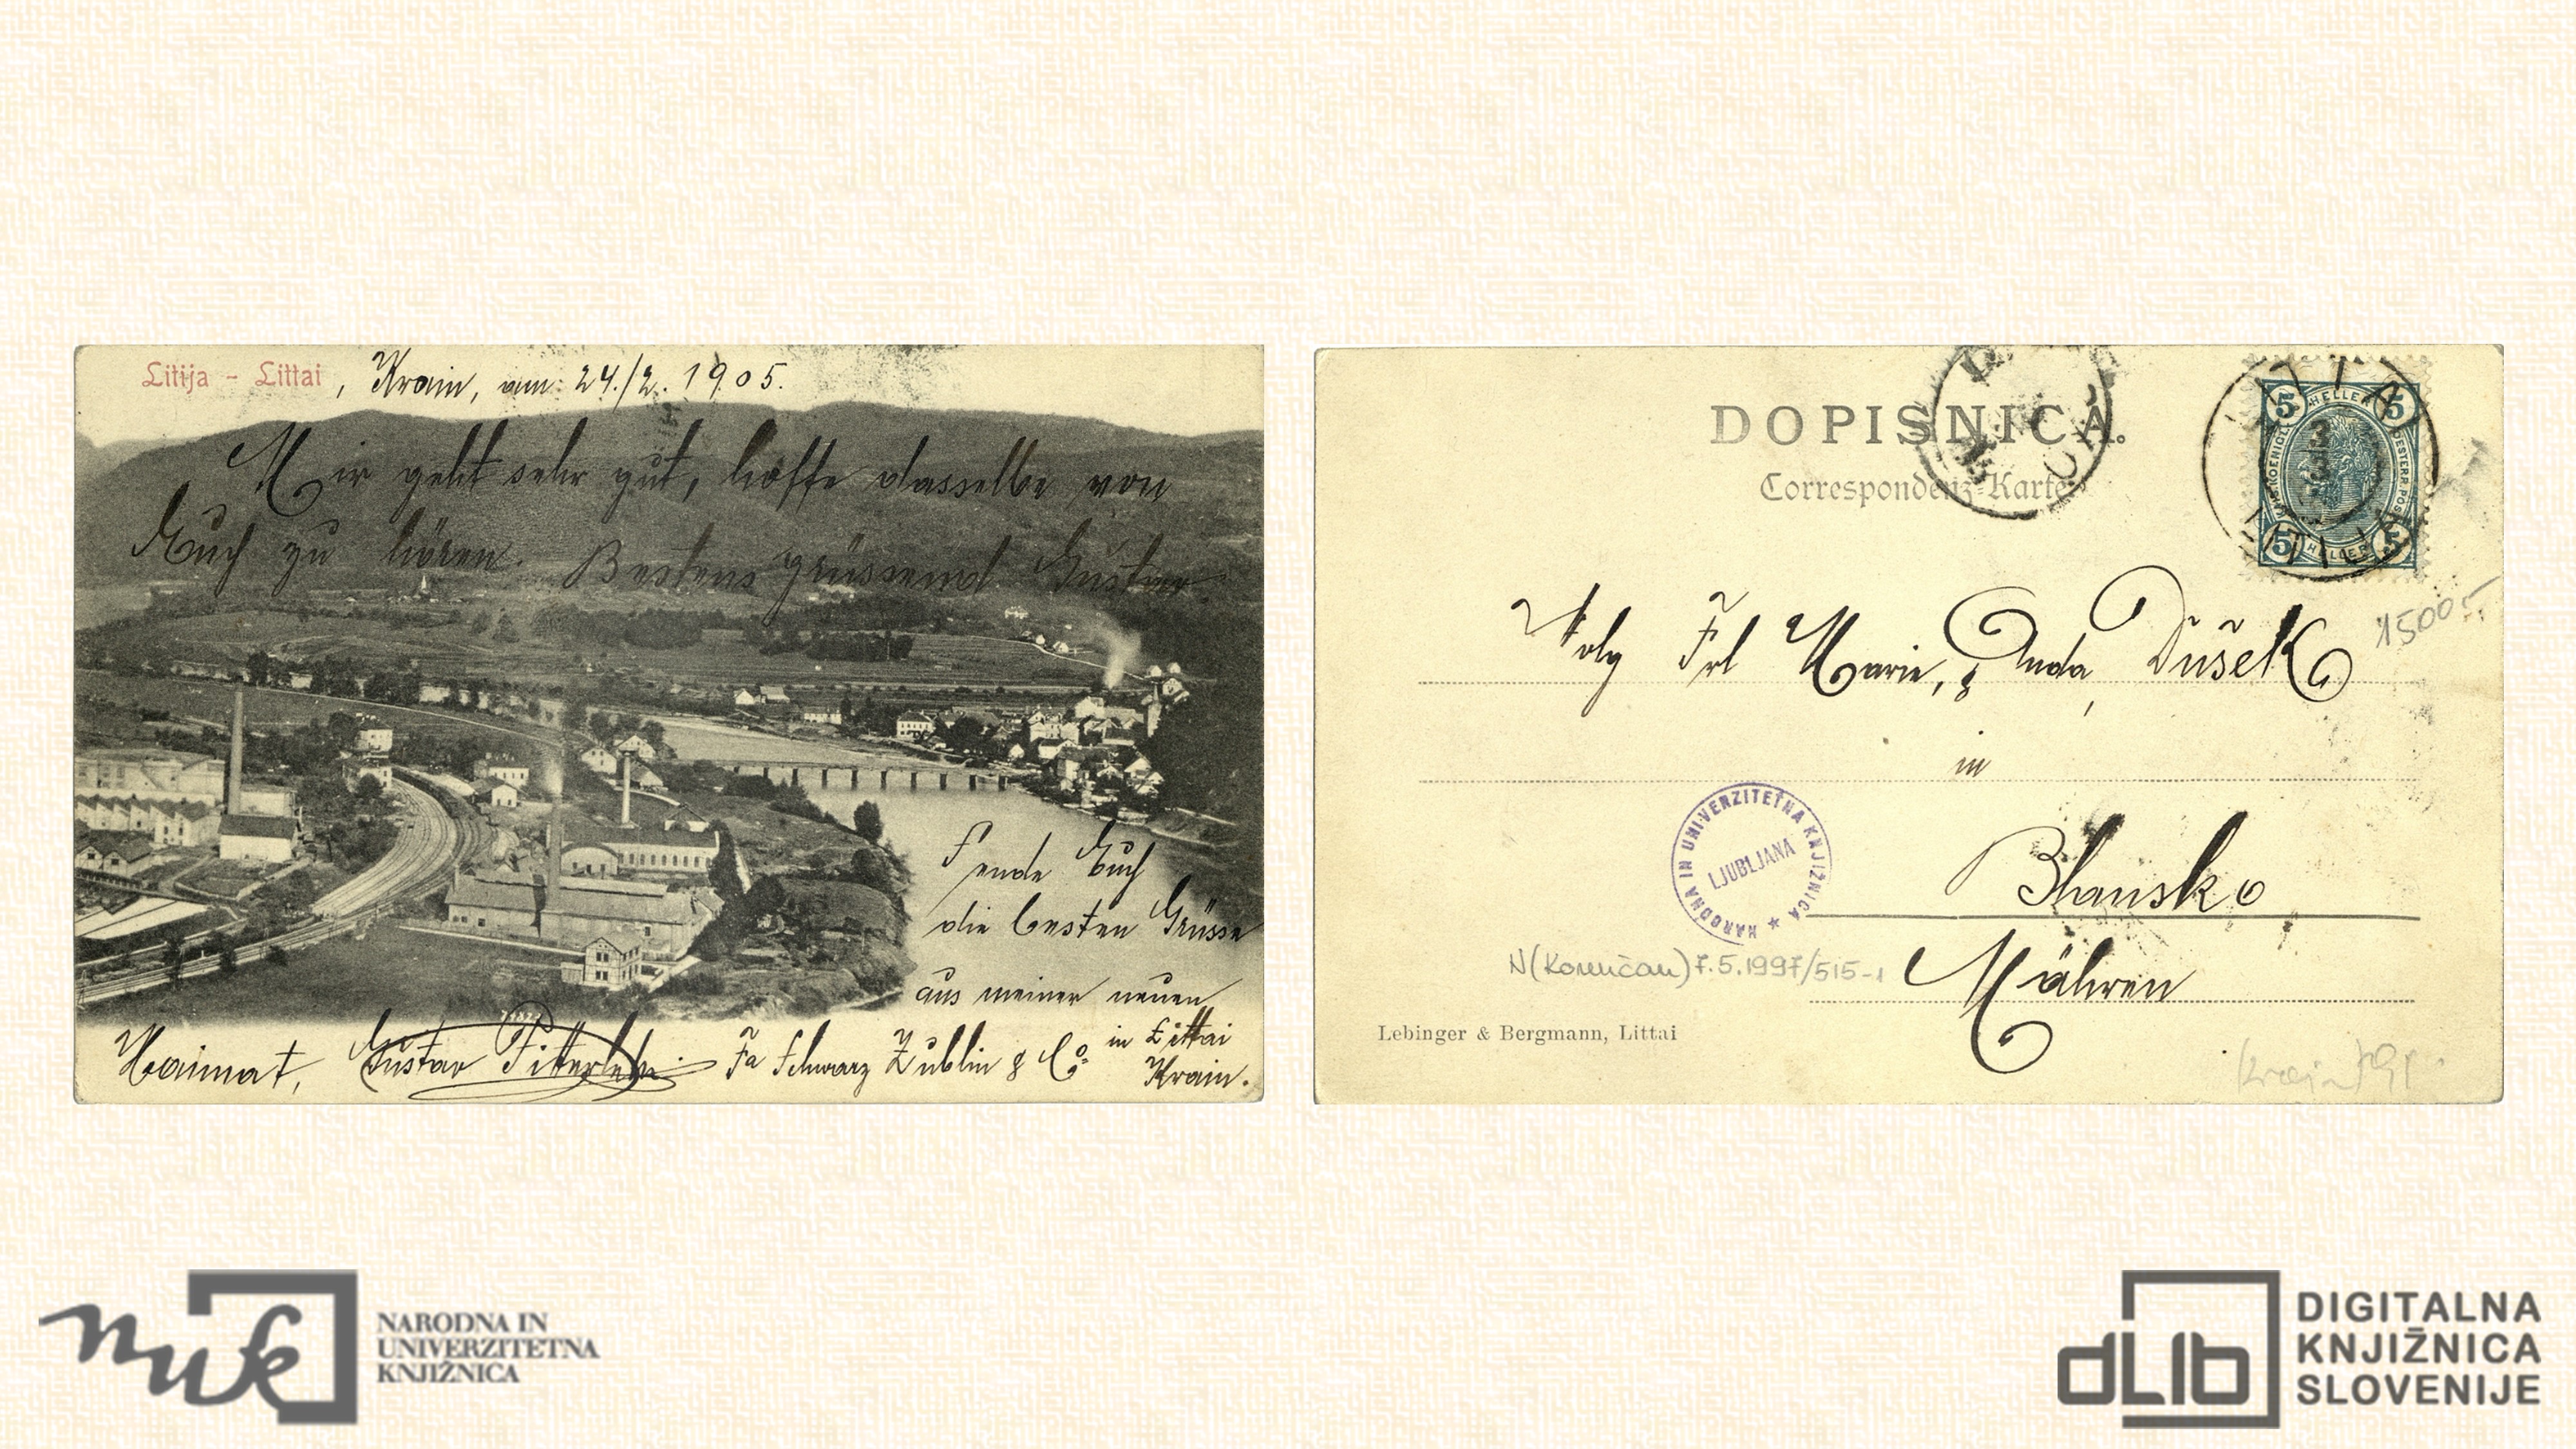 Litija - Littai, Krain, am 24./2. 1905.
Mir geht sehr gut, hoffe dasselbe von
Euch zu hören. Bestens grüssend Gustav
Sende Euch
die besten Grüsse
aus meiner neuen
Haimat, Gustav Fa Schwarz Zublin & Co in Littai
Krain.
DOPISNICA.
Correspondenz-Karte
5 HELLER 5
5 HELLER 5
Frl Marie, & Anda, Dušek
15005-
in
Blansko
Mähren
NARODNA IN UNIVERZITETNA KNJIŽNICA ★
LJUBLJANA
N(Korenčan) 7.5.1997/515-1
Lebinger & Bergmann, Littai
nuk
NARODNA IN
UNIVERZITETNA
KNJIŽNICA
dLib
DIGITALNA
KNJIŽNICA
SLOVENIJE